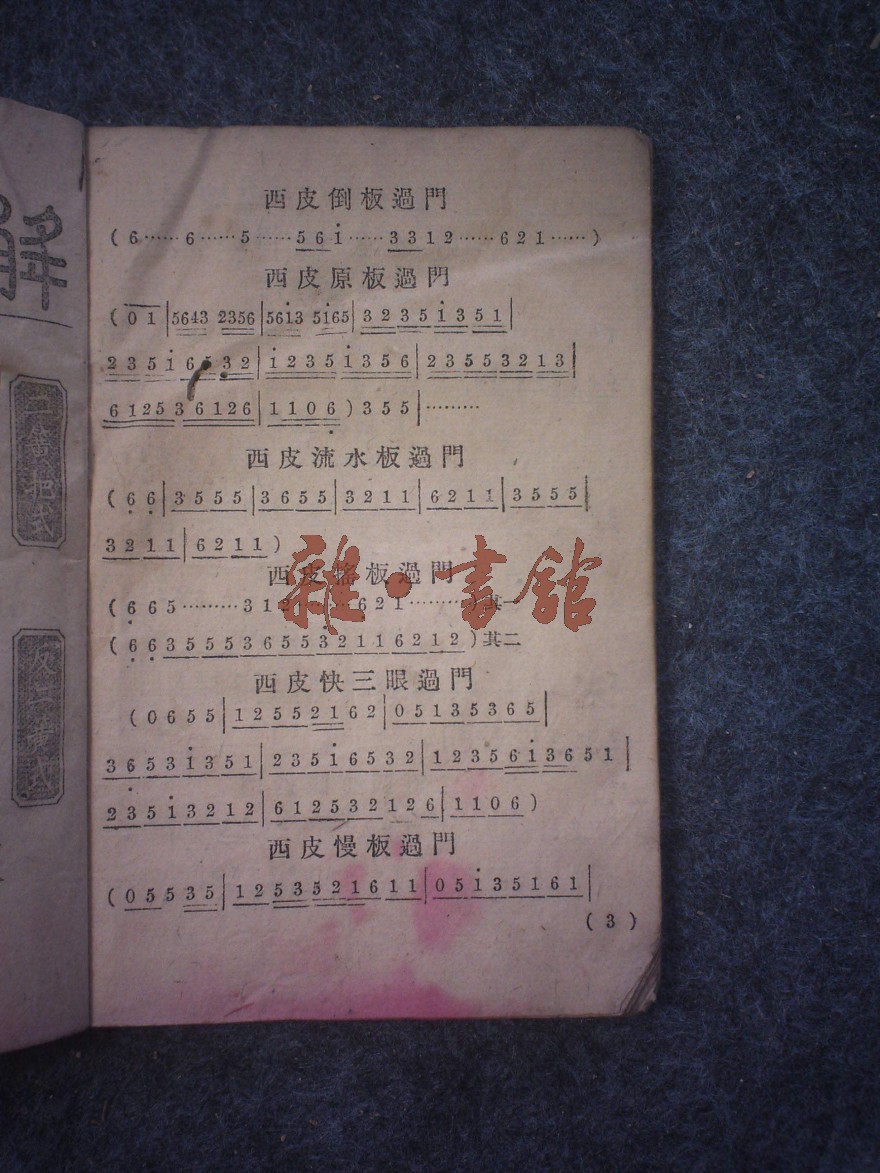 解
二黃把式
反二黃式
西皮倒板過門
( 6 …… 6 …… 5 …… 5 6 i …… 3 3 1 2 …… 6 2 1 …… )
西皮原板過門
( 0 1 | 5643 2356 | 56i3 5i65 | 3 2 3 5 i 3 5 1 |
2 3 5 i 6 5 3 2 | i 2 3 5 i 3 5 6 | 2 3 5 5 3 2 1 3 |
6 1 2 5 3 6 1 2 6 | 1 1 0 6 ) 3 5 5 | ………
西皮流水板過門
( 6 6 | 3 5 5 5 | 3 6 5 5 | 3 2 1 1 | 6 2 1 1 | 3 5 5 5 |
3 2 1 1 | 6 2 1 1 )
西皮搖板過門
( 6 6 5 ……… 3 1 2 ……… 6 2 1 ……… ) 其一
( 6 6 3 5 5 5 3 6 5 5 3 2 1 1 6 2 1 2 ) 其二
西皮快三眼過門
( 0 6 5 5 | 1 2 5 5 2 1 6 2 | 0 5 1 3 5 3 6 5 |
3 6 5 3 i 3 5 1 | 2 3 5 i 6 5 3 2 | 1 2 3 5 6 i 3 6 5 1 |
2 3 5 i 3 2 1 2 | 6 1 2 5 3 2 1 2 6 | 1 1 0 6 )
西皮慢板過門
( 0 5 5 3 5 | 1 2 5 3 5 2 1 6 1 1 | 0 5 i 3 5 1 6 1 |
( 3 )
雜·書館